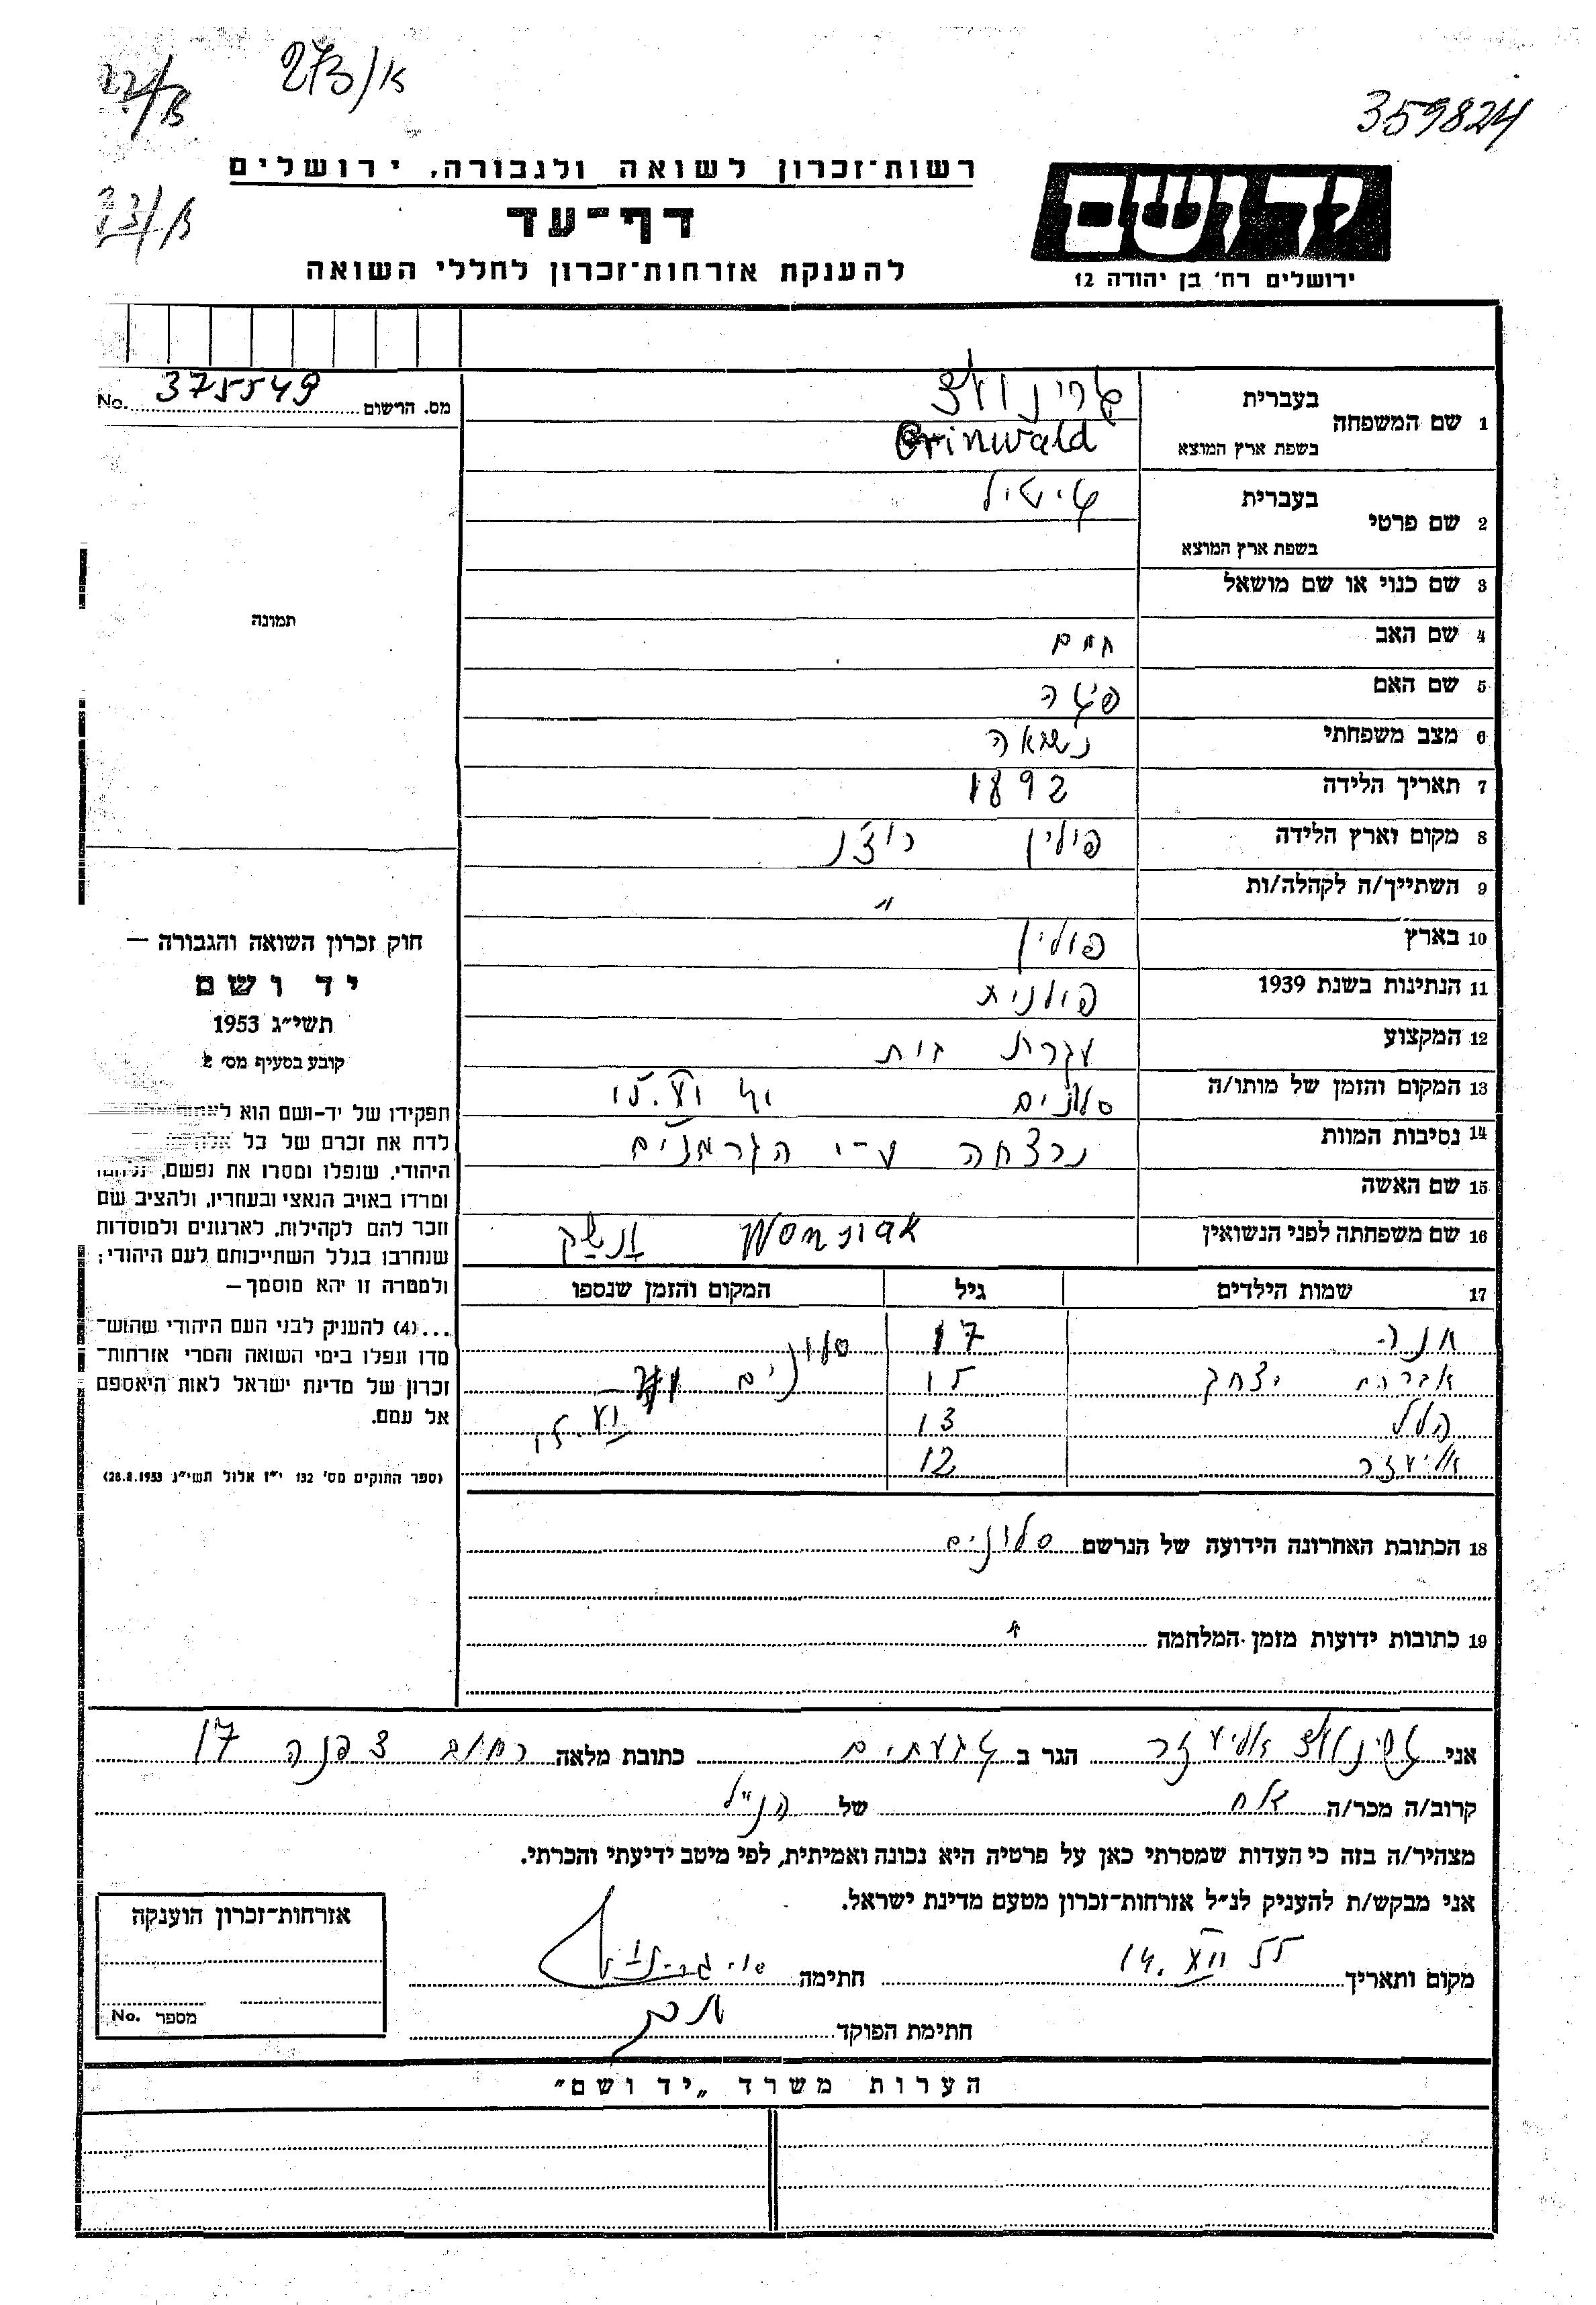 273/א
359824
רשות־זכרון לשואה ולגבורה, ירושלים
דף־עד
להענקת אזרחות־זכרון לחללי השואה
יד ושם
ירושלים רח' בן יהודה 12
מס. הרישום 375549 No.
1 שם המשפחה בעברית גרינולד
בשפת ארץ המוצא Grinwald
2 שם פרטי בעברית
בשפת ארץ המוצא
3 שם כנוי או שם מושאל
4 שם האב חיים
5 שם האם
6 מצב משפחתי נשואה
7 תאריך הלידה 1892
8 מקום וארץ הלידה פולין רוז'ן
9 השתייך/ה לקהלה/ות "
10 בארץ פולין
11 הנתינות בשנת 1939 פולנית
12 המקצוע עקרת בית
13 המקום והזמן של מותו/ה סלונים 15.VI 41
14 נסיבות המוות נרצחה ע"י הגרמנים
15 שם האשה
16 שם משפחתה לפני הנשואין
17 שמות הילדים גיל המקום והזמן שנספו
חנה 17 סלונים
אברהם יצחק 15
הלל 13
אליעזר 12
18 הכתובת האחרונה הידועה של הנרשם סלונים
19 כתובות ידועות מזמן המלחמה
תמונה
חוק זכרון השואה והגבורה —
יד ושם
תשי"ג 1953
קובע בסעיף מס' 2
תפקידו של יד־ושם הוא
לדת את זכרם של כל
היהודי, שנפלו ומסרו את נפשם,
ומרדו באויב הנאצי ובעוזריו, ולהציב שם
וזכר להם לקהילות, לארגונים ולמוסדות
שנחרבו בגלל השתייכותם לעם היהודי;
ולמטרה זו יהא מוסמך—
...(4) להעניק לבני העם היהודי שהוש־
מדו ונפלו בימי השואה והמרי אזרחות־
זכרון של מדינת ישראל לאות היאספם
אל עמם.
(ספר החוקים מס' 132 י"ז אלול תשי"ג 28.8.1953)
אני גרינולד אליעזר הגר ב גבעתיים כתובת מלאה רחוב 17
קרוב/ה מכר/ה אח של הנ"ל
מצהיר/ה בזה כי העדות שמסרתי כאן על פרטיה היא נכונה ואמיתית, לפי מיטב ידיעתי והכרתי.
אני מבקש/ת להעניק לנ"ל אזרחות־זכרון מטעם מדינת ישראל.
מקום ותאריך 14.XII 55 חתימה
חתימת הפוקד
אזרחות־זכרון הוענקה
מספר No.
הערות משרד „יד ושם"